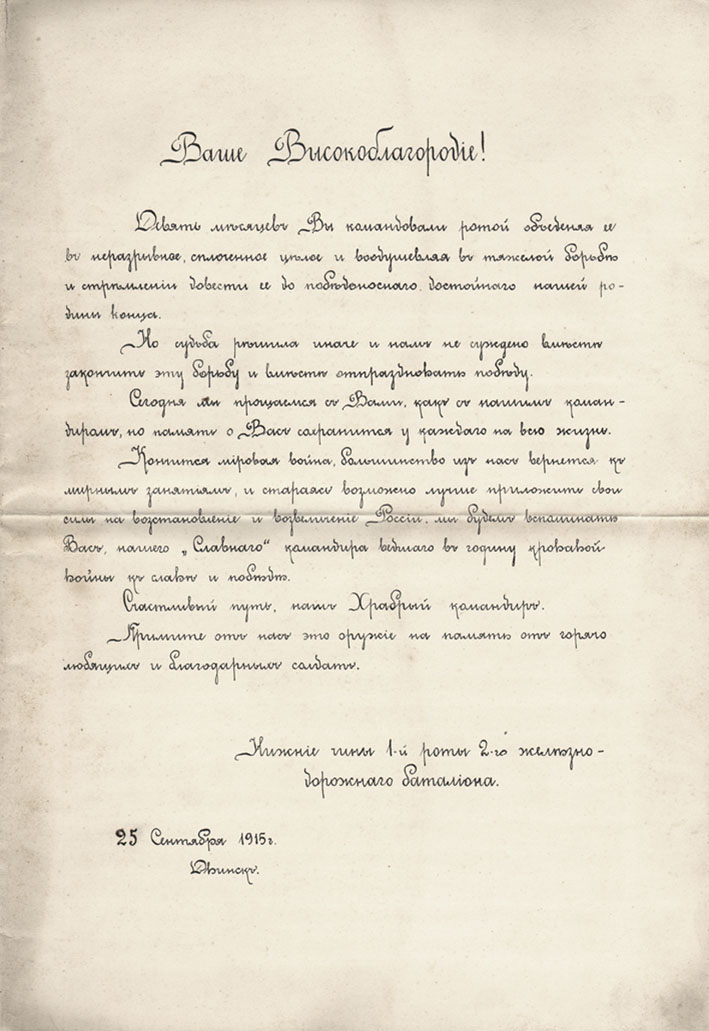 Ваше Высокоблагородіе!
Девять мѣсяцевъ Вы командовали ротой объеденяя ее
въ неразрывное, сплоченное цѣлое и воодушевляя въ тяжелой борьбѣ
и стремленіи довести ее до побѣдоноснаго, достойнаго нашей ро-
дины конца.
Но судьба рѣшила иначе и намъ не суждено вмѣстѣ
закончить эту борьбу и вмѣстѣ отпраздновать побѣду.
Сегодня мы прощаемся съ Вами, какъ съ нашимъ коман-
диромъ, но память о Васъ сохранится у каждаго на всю жизнь.
Кончится міровая война, большинство изъ насъ вернется къ
мирнымъ занятіямъ, и стараясь возможно лучше приложить свои
силы на возстановленіе и возвеличеніе Россіи, мы будемъ вспоминать
Васъ, нашего „Славнаго“ командира ведшаго въ годину кровавой
войны къ славѣ и побѣдѣ.
Счастливый путь, нашъ Храбрый командиръ.
Примите отъ насъ это оружіе на память отъ горячо
любящихъ и благодарныхъ солдатъ.
Нижніе чины 1-й роты 2-го желѣзно-
дорожнаго баталіона.
25 Сентября 1915 г.
Двинскъ.